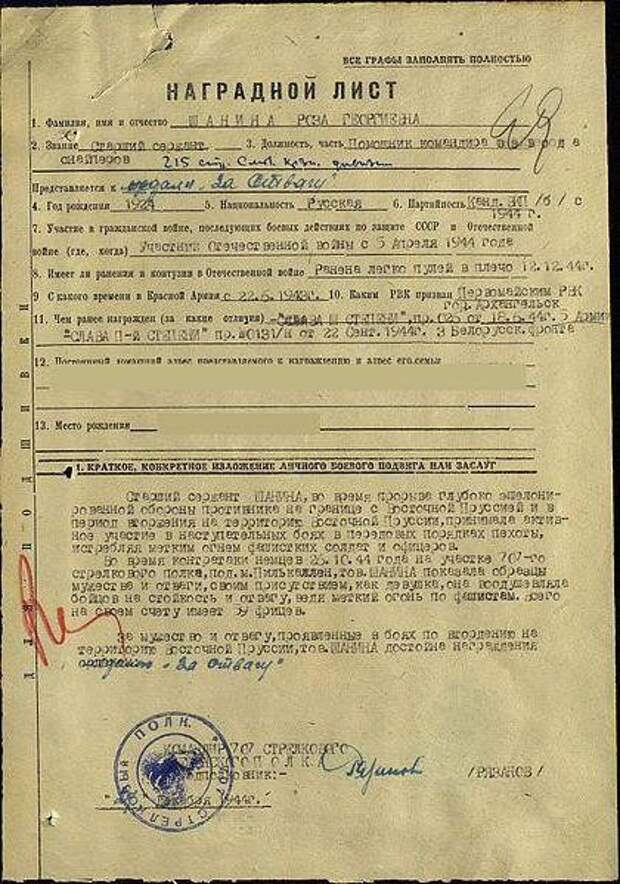 ВСЕ ГРАФЫ ЗАПОЛНЯТЬ ПОЛНОСТЬЮ
НАГРАДНОЙ ЛИСТ
1. Фамилия, имя и отчество ШАНИНА РОЗА ГЕОРГИЕВНА
2. Звание Старший сержант 3. Должность, часть Помощник командира взвода
снайперов 215 стр. дивизии
Представляется к медали "За Отвагу"
4. Год рождения 1924 5. Национальность Русская 6. Партийность Канд. ВКП /б/ с
1944 г.
7. Участие в гражданской войне, последующих боевых действиях по защите СССР и Отечественной
войне (где, когда) Участник Отечественной войны с 5 Апреля 1944 года
8. Имеет ли ранения и контузии в Отечественной войне Ранена легко пулей в плечо 12.12.44г.
9 С какого времени в Красной Армии с 22.6.1943г. 10. Каким РВК призван Первомайским РВК
гор. Архангельск
11. Чем ранее награжден (за какие отличия) "СЛАВА Ш СТЕПЕНИ", пр. 025 от 18.6.44г. 5 Армии
"СЛАВА П-Й СТЕПЕНИ" пр.№0131/н от 22 Сент. 1944г. 3 Белорусск. фронта
12. Постоянный домашний адрес представляемого к награждению и адрес его семьи
13. Место рождения
1. КРАТКОЕ, КОНКРЕТНОЕ ИЗЛОЖЕНИЕ ЛИЧНОГО БОЕВОГО ПОДВИГА ИЛИ ЗАСЛУГ
Старший сержант ШАНИНА, во время прорыва глубоко эшелони-
рованной обороны противника на границе с Восточной Пруссией и в
период вторжения на территорию Восточной Пруссии, принимала актив-
ное участие в наступательных боях в передовых порядках пехоты,
истребляя метким огнем фашистких солдат и офицеров.
Во время контратаки немцев 26.10.44 года на участке 707-го
стрелкового полка, под.м. Пилькаллен, тов. ШАНИНА показала образцы
мужества и отваги, своим присутствием, как девушка, она воодушевляла
бойцов на стойкость и отвагу, ведя меткий огонь по фашистам. Всего
на своем счету имеет 59 фрицев.
За мужество и отвагу, проявленные в боях по вторжению на
территорию Восточной Пруссии, тов. ШАНИНА достойна награждения
медалью "За Отвагу"
КОМАНДИР 707 СТРЕЛКОВОГО
ПОЛКА
Подполковник:-
/РЯЗАНОВ/
декабря 1944г.
ДЛЯ ПОДШИВКИ
СТРЕЛКОВЫЙ ПОЛК